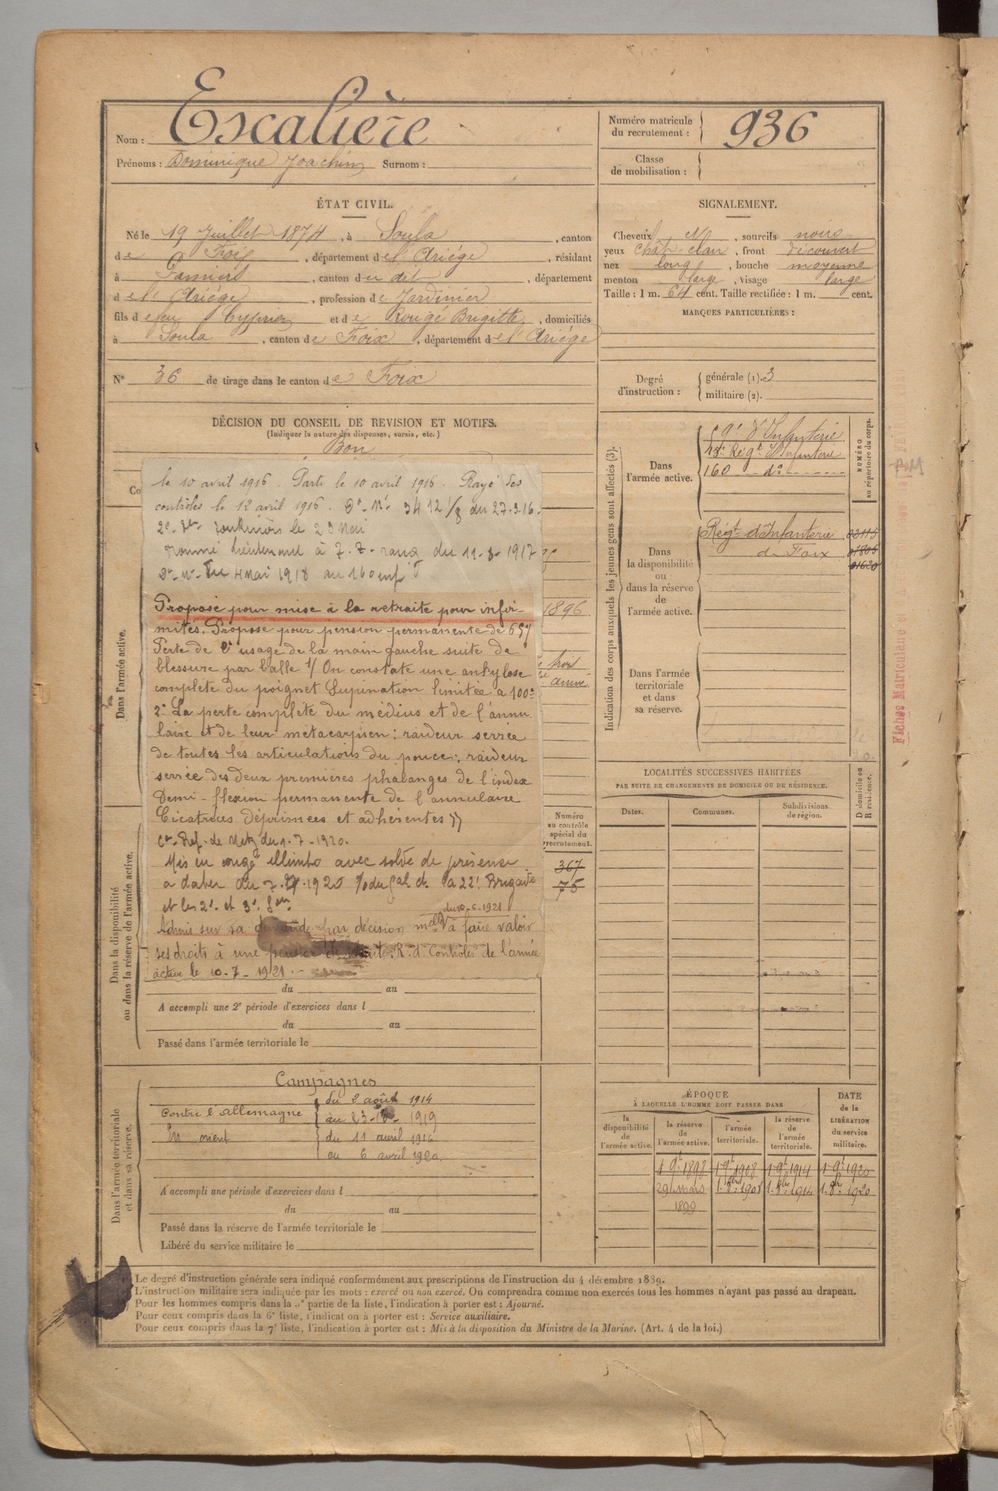 Nom : Escalière
Prénoms : Dominique Joachim Surnom :
Numéro matricule du recrutement : 936
Classe de mobilisation :
ÉTAT CIVIL.
Né le 19 Juillet 1874, à Soula, canton
de Foix, département de l'Ariège, résidant
à Pamiers, canton du dit, département
de l'Ariège, profession de Jardinier
fils de feu Cyprien et de Rouge Brigitte, domiciliés
à Soula, canton de Foix, département de l'Ariège
N° 36 de tirage dans le canton de Foix
SIGNALEMENT.
Cheveux, sourcils noirs
yeux chât-clair, front découvert
nez long, bouche moyenne
menton large, visage large
Taille : 1 m. 64 cent. Taille rectifiée : 1 m. cent.
MARQUES PARTICULIÈRES :
Degré d'instruction : générale (1). 3
militaire (2).
DÉCISION DU CONSEIL DE REVISION ET MOTIFS.
(Indiquer la nature des dispenses, sursis, etc.)
Bon
Co
le 10 avril 1916. Parti le 10 avril 1916. Rayé des
contrôles le 12 avril 1916. D° M° 3412 1/8 du 27-3-16.
nommé lieutenant à T.T. rang du 11-3-1917
du 4 Mai 1918 au 160 inf
Proposé pour mise à la retraite pour infir-
mités. Proposé pour pension permanente de 65%
Perte de l'usage de la main gauche suite de
blessure par balle 1/ On constate une ankylose
complète du poignet Supination limitée à 100°
2° La perte complète du médius et de l'annu
laire et de leur métacarpien ; raideur serrée
de toutes les articulations du pouce ; raideur
serrée des deux premières phalanges de l'index
Demi-flexion permanente de l'annulaire
Cicatrices déprimées et adhérentes »
Con Ref. de Metz du 1-7-1920.
Mis en congé illimité avec solde de présence
à dater du 7. 1920 du Gal Ct la 22e Brigade
et les 2e et 3e
du 10-6-1921
Admis sur sa demande par décision à faire valoir
ses droits à une pension de retraite. R. d. Contrôles de l'armée
active le 10-7-1921
1896
Dans l'armée active.
Dans la disponibilité
ou dans la réserve de l'armée active.
Dans l'armée territoriale
et dans sa réserve.
Numéro au contrôle spécial du recrutement.
367
75
du au
A accompli une 2e période d'exercices dans l
du au
Passé dans l'armée territoriale le
Campagnes
Contre l'Allemagne du 2 août 1914
au 23- 1919
En orient du 11 avril 1916
au 6 avril 1920.
A accompli une période d'exercices dans l
du au
Passé dans la réserve de l'armée territoriale le
Libéré du service militaire le
Indication des corps auxquels les jeunes gens sont affectés (3).
NUMÉRO au répertoire du corps.
Dans l'armée active.
59e d'Infanterie
Régt d'Infanterie
160 do
Dans la disponibilité ou dans la réserve de l'armée active.
Régt d'Infanterie
de Foix
Dans l'armée territoriale et dans sa réserve.
LOCALITÉS SUCCESSIVES HABITÉES
PAR SUITE DE CHANGEMENTS DE DOMICILE OU DE RÉSIDENCE.
Dates. Communes. Subdivisions de région. Domicile ou Résidence.
ÉPOQUE
À LAQUELLE L'HOMME DOIT PASSER DANS
la disponibilité de l'armée active. la réserve de l'armée active. l'armée territoriale. la réserve de l'armée territoriale. DATE de la LIBÉRATION du service militaire.
1 9bre 1898 1 9bre 1908 1 9bre 1914 1 9bre 1920
29 mars 1899 1. 8bre 1908 1. 8bre 1914 1. 8bre 1920
Le degré d'instruction générale sera indiqué conformément aux prescriptions de l'instruction du 4 décembre 1889.
L'instruction militaire sera indiquée par les mots : exercé ou non exercé. On comprendra comme non exercés tous les hommes n'ayant pas passé au drapeau.
Pour les hommes compris dans la 5e partie de la liste, l'indication à porter est : Ajourné.
Pour ceux compris dans la 6e liste, l'indication à porter est : Service auxiliaire.
Pour ceux compris dans la 7e liste, l'indication à porter est : Mis à la disposition du Ministre de la Marine. (Art. 4 de la loi.)